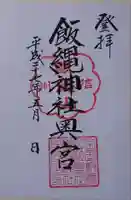 登拝
飯縄神社奥宮
平成二十七年五月 日